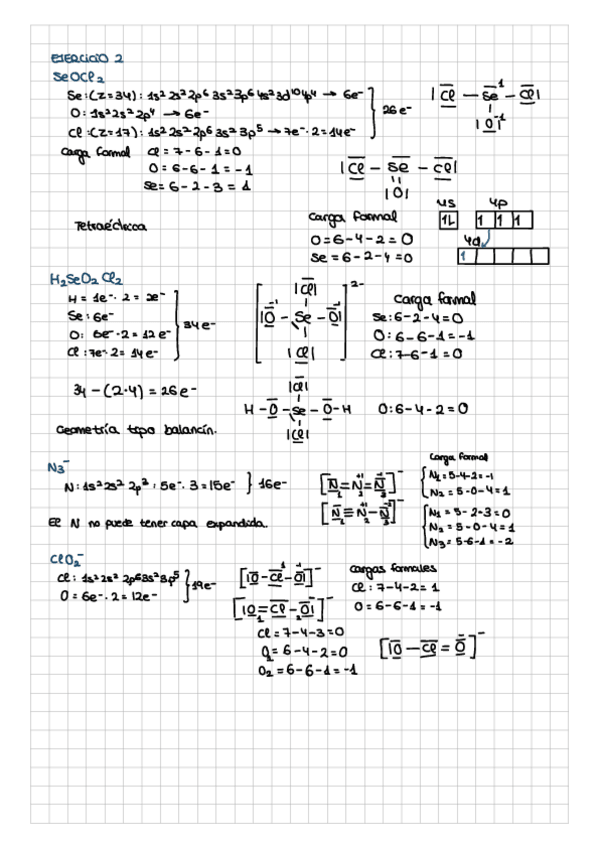 EJERCICIO 2
SeOCl₂
Se:(Z=34): 1s² 2s² 2p⁶ 3s² 3p⁶ 4s² 3d¹⁰ 4p⁴ → 6e⁻
O: 1s² 2s² 2p⁴ → 6e⁻
Cl:(Z=17): 1s² 2s² 2p⁶ 3s² 3p⁵ → 7e⁻·2=14e⁻
26e⁻
|Cl — Se¹ — Cl|
|O|⁻¹
Carga formal Cl=7-6-1=0
O=6-6-1=-1
Se=6-2-3=1
|Cl — Se — Cl|
||
|O|
Tetraédrica
Carga formal
O=6-4-2=0
Se=6-2-4=0
4s 4p
1L 1 1 1
4d
1
H₂SeO₂Cl₂
H = 1e⁻·2 = 2e⁻
Se: 6e⁻
O: 6e⁻·2=12e⁻
Cl: 7e⁻·2=14e⁻
34e⁻
|Cl|
|O — Se — O|
|Cl|
2-
Carga formal
Se: 6-2-4=0
O: 6-6-1=-1
Cl: 7-6-1=0
34-(2·4)=26e⁻
|Cl|
H-O-Se-O-H
|Cl|
O: 6-4-2=0
Geometría tipo balancín.
N₃⁻
N: 1s² 2s² 2p³: 5e⁻·3=15e⁻ } 16e⁻
[N=N=N]⁻
1 2 3
Carga formal
N₁=5-4-2=-1
N₂=5-0-4=1
[N≡N-N]⁻
1 2 3
N₁=5-2-3=0
N₂=5-0-4=1
N₃=5-6-1=-2
El N no puede tener capa expandida.
ClO₂⁻
Cl: 1s² 2s² 2p⁶ 3s² 3p⁵
O=6e⁻·2=12e⁻
19e⁻
[|O-Cl-O|]⁻
Cargas formales
Cl: 7-4-2=1
O=6-6-1=-1
[|O=Cl-O|]⁻
1 2
Cl=7-4-3=0
O₁=6-4-2=0
O₂=6-6-1=-1
[|O-Cl=O]⁻